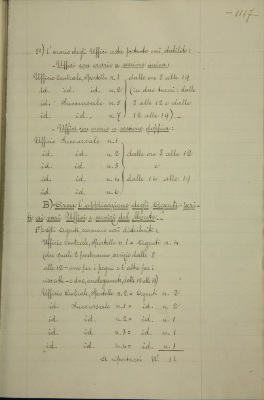 -1117-
A) L'orario degli Uffici sarà pertanto così stabilito:
- Uffici con orario a sezione unica:
Ufficio Centrale, Sportello n. 1 dalle ore 8 alle 19
id. id. id. n. 2 (in due turni: dalle
id. Succursale n. 5 8 alle 12 e dalle
id. id. n. 7 12 alle 19).-
- Uffici con orario a sezione duplice:
Ufficio Succursale n. 1
id. id. n. 2 dalle ore 8 alle 12
id. id. n. 3 e
id. id. n. 4 dalle 14 alle 19
id. id. n. 6
B)- Circa l'applicazione degli Agenti
ai vari Uffici e servizi del
Agenti, saranno così distribuiti:
Ufficio Centrale, Sportello n. 1 = Agenti n. 4
(dei quali 2 faranno servizio dalle 8
alle 12 - uno per i pegni e l'altro per i
riscatti - e due, analogamente, dalle 12 alle 19)
Ufficio Centrale, Sportello n. 2 = Agenti n. 2
id. Succursale n. 1 = id. n. 2
id. id. n. 2 = id. n. 1
id. id. n. 3 = id. n. 1
id. id. n. 4 = id. n. 1
a riportarsi N. 11